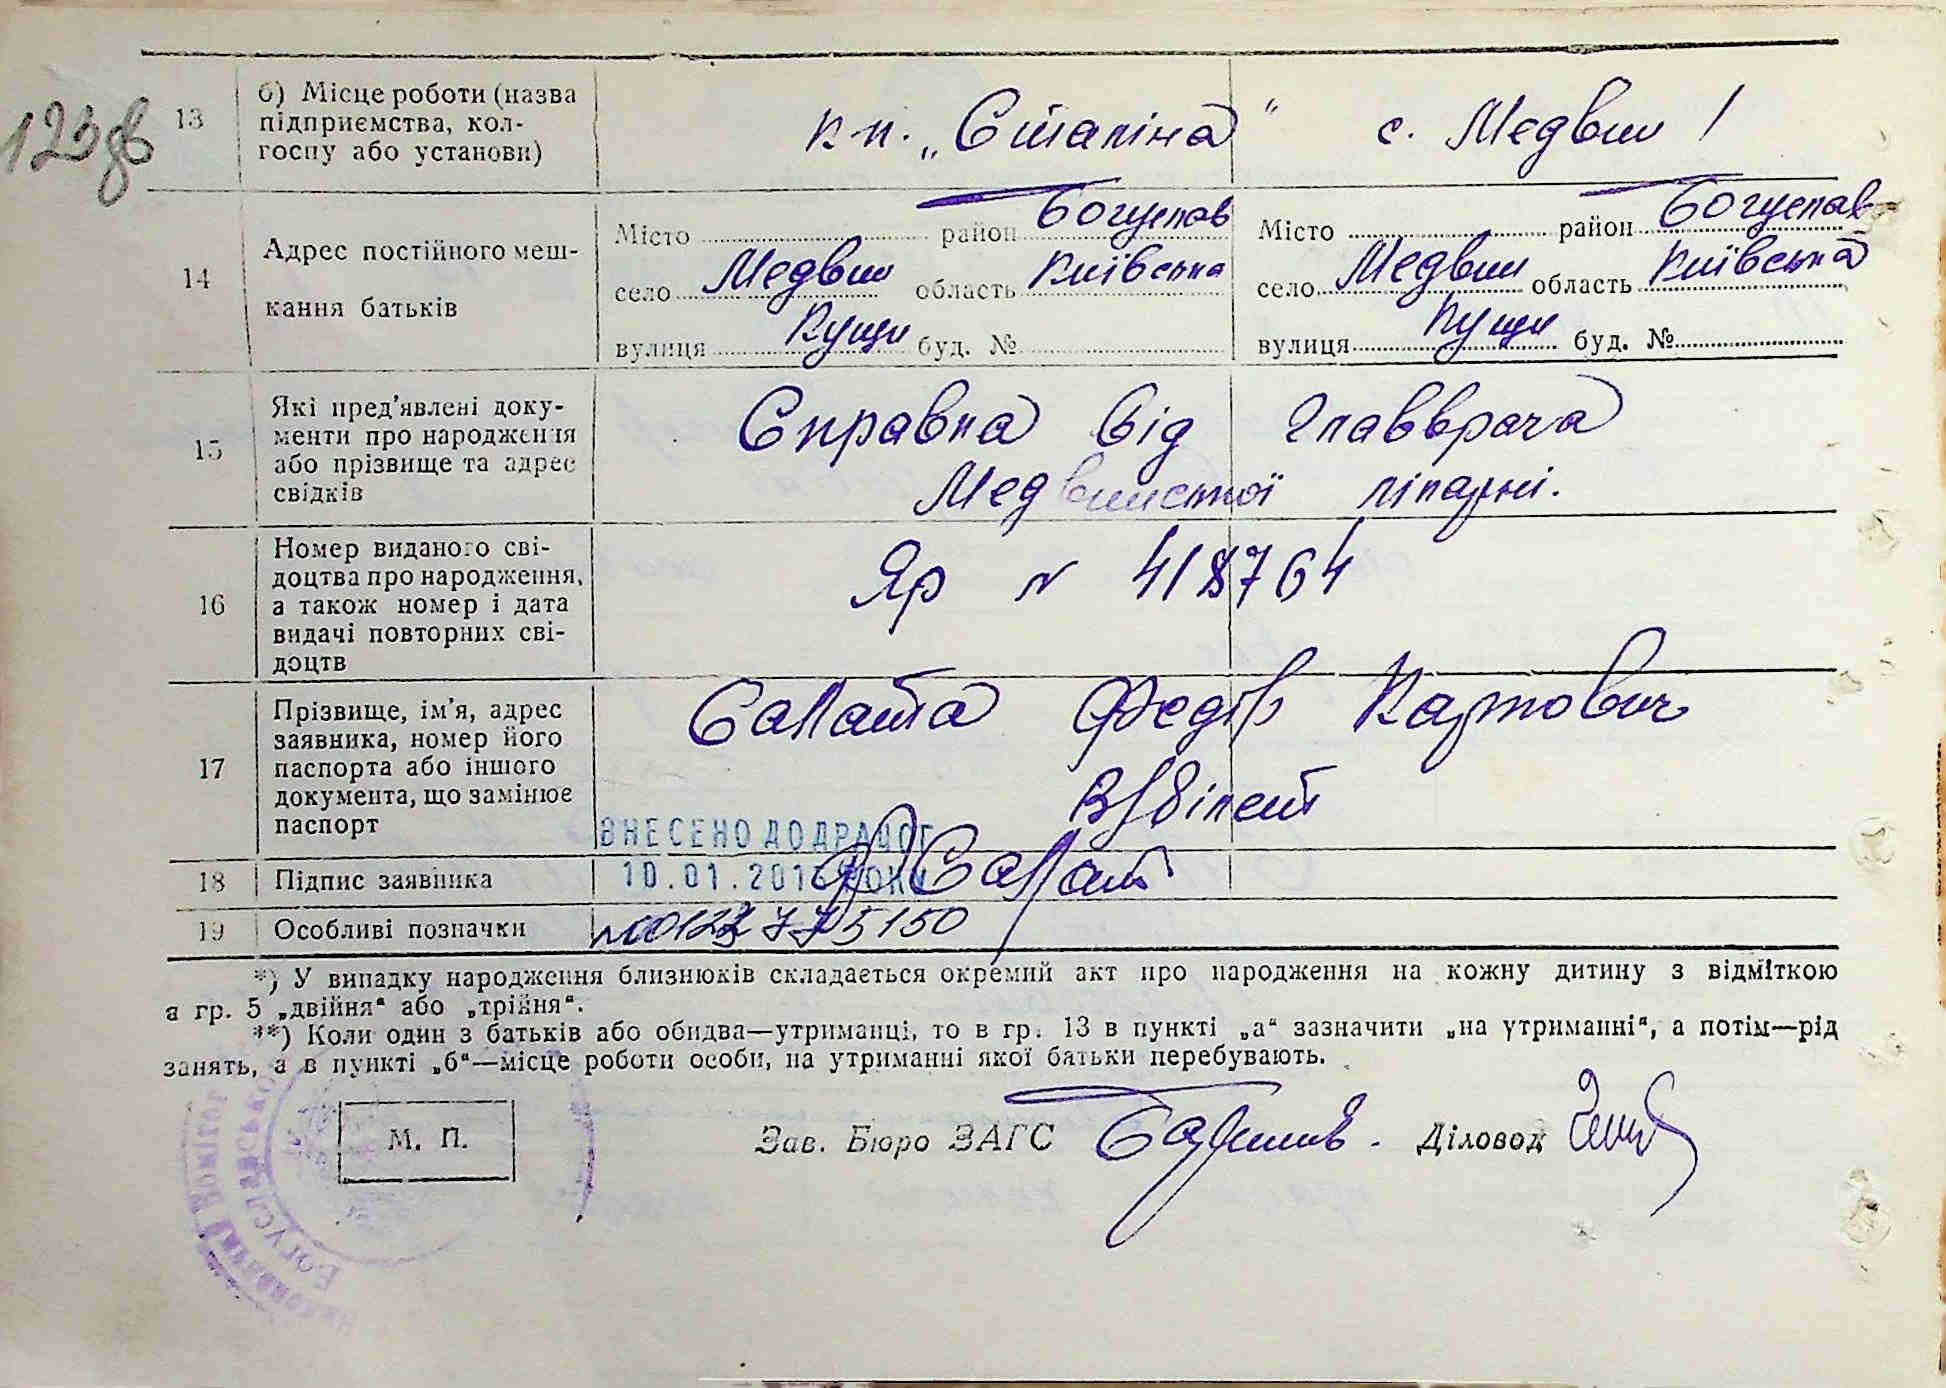 123зв
13 б) Місце роботи (назва підприємства, кол-
госпу або установи)
к-п. „Сталіна“ с. Медвин 1
14 Адрес постійного меш-
кання батьків
Місто район Богуслав Місто район Богуслав
село Медвин область Київська село Медвин область Київська
вулиця Кущи буд. № вулиця Кущи буд. №
15 Які пред’явлені доку-
менти про народження
або прізвище та адрес
свідків
Справка від главврача
Медвинської лікарні.
16 Номер виданого сві-
доцтва про народження,
а також номер і дата
видачі повторних сві-
доцтв
Яр N 418764
17 Прізвище, ім’я, адрес
заявника, номер його
паспорта або іншого
документа, що замінює
паспорт
Салата Федір Карпович
В/білет
ВНЕСЕНО ДО ДРАЦОГ
18 Підпис заявника
10.01.201 РОКУ
Салат
19 Особливі позначки
*) У випадку народження близнюків складається окремий акт про народження на кожну дитину з відміткою
в гр. 5 „двійня“ або „трійня“.
**) Коли один з батьків або обидва—утриманці, то в гр. 13 в пункті „а“ зазначити „на утриманні“, а потім—рід
занять, а в пункті „б“—місце роботи особи, на утриманні якої батьки перебувають.
М. П.
Зав. Бюро ЗАГС Діловод